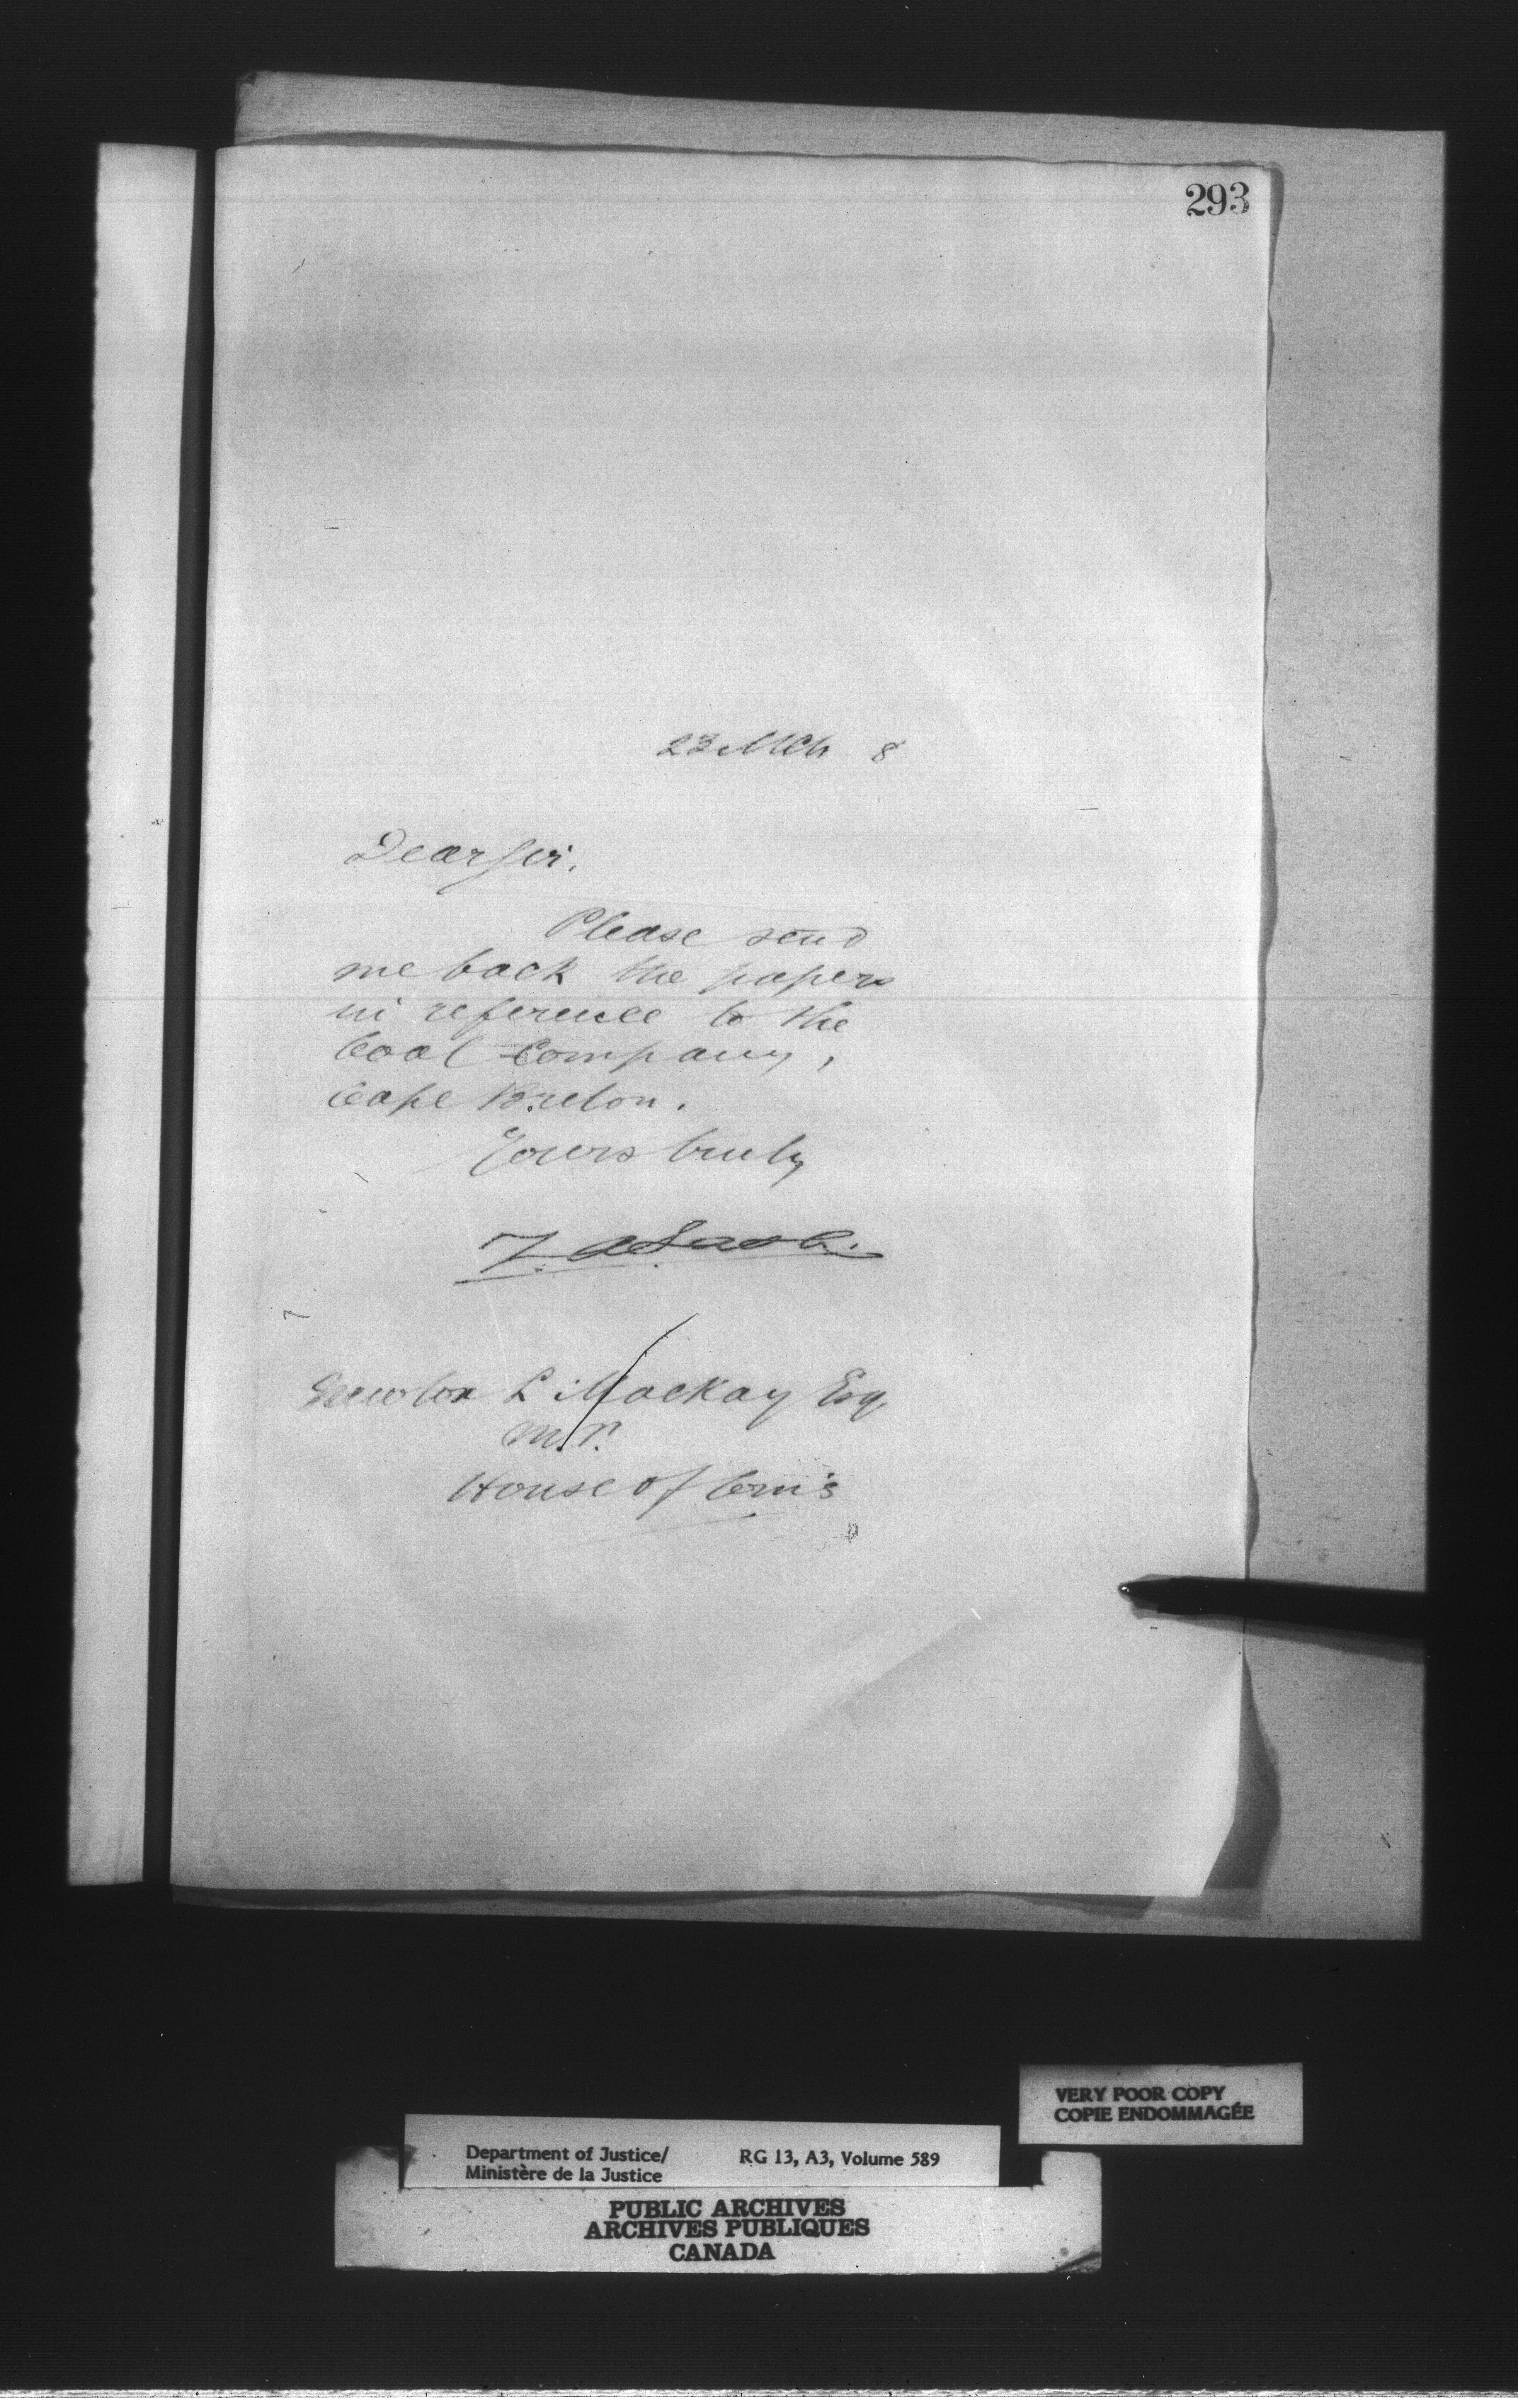 293
23 Mch 8
Dear Sir,
Please send
me back the papers
in reference to the
Coal Company,
Cape Breton.
Yours truly
Newton L. Mackay Esq,
M.P.
House of Com's
VERY POOR COPY
COPIE ENDOMMAGÉE
Department of Justice/ RG 13, A3, Volume 589
Ministère de la Justice
PUBLIC ARCHIVES
ARCHIVES PUBLIQUES
CANADA